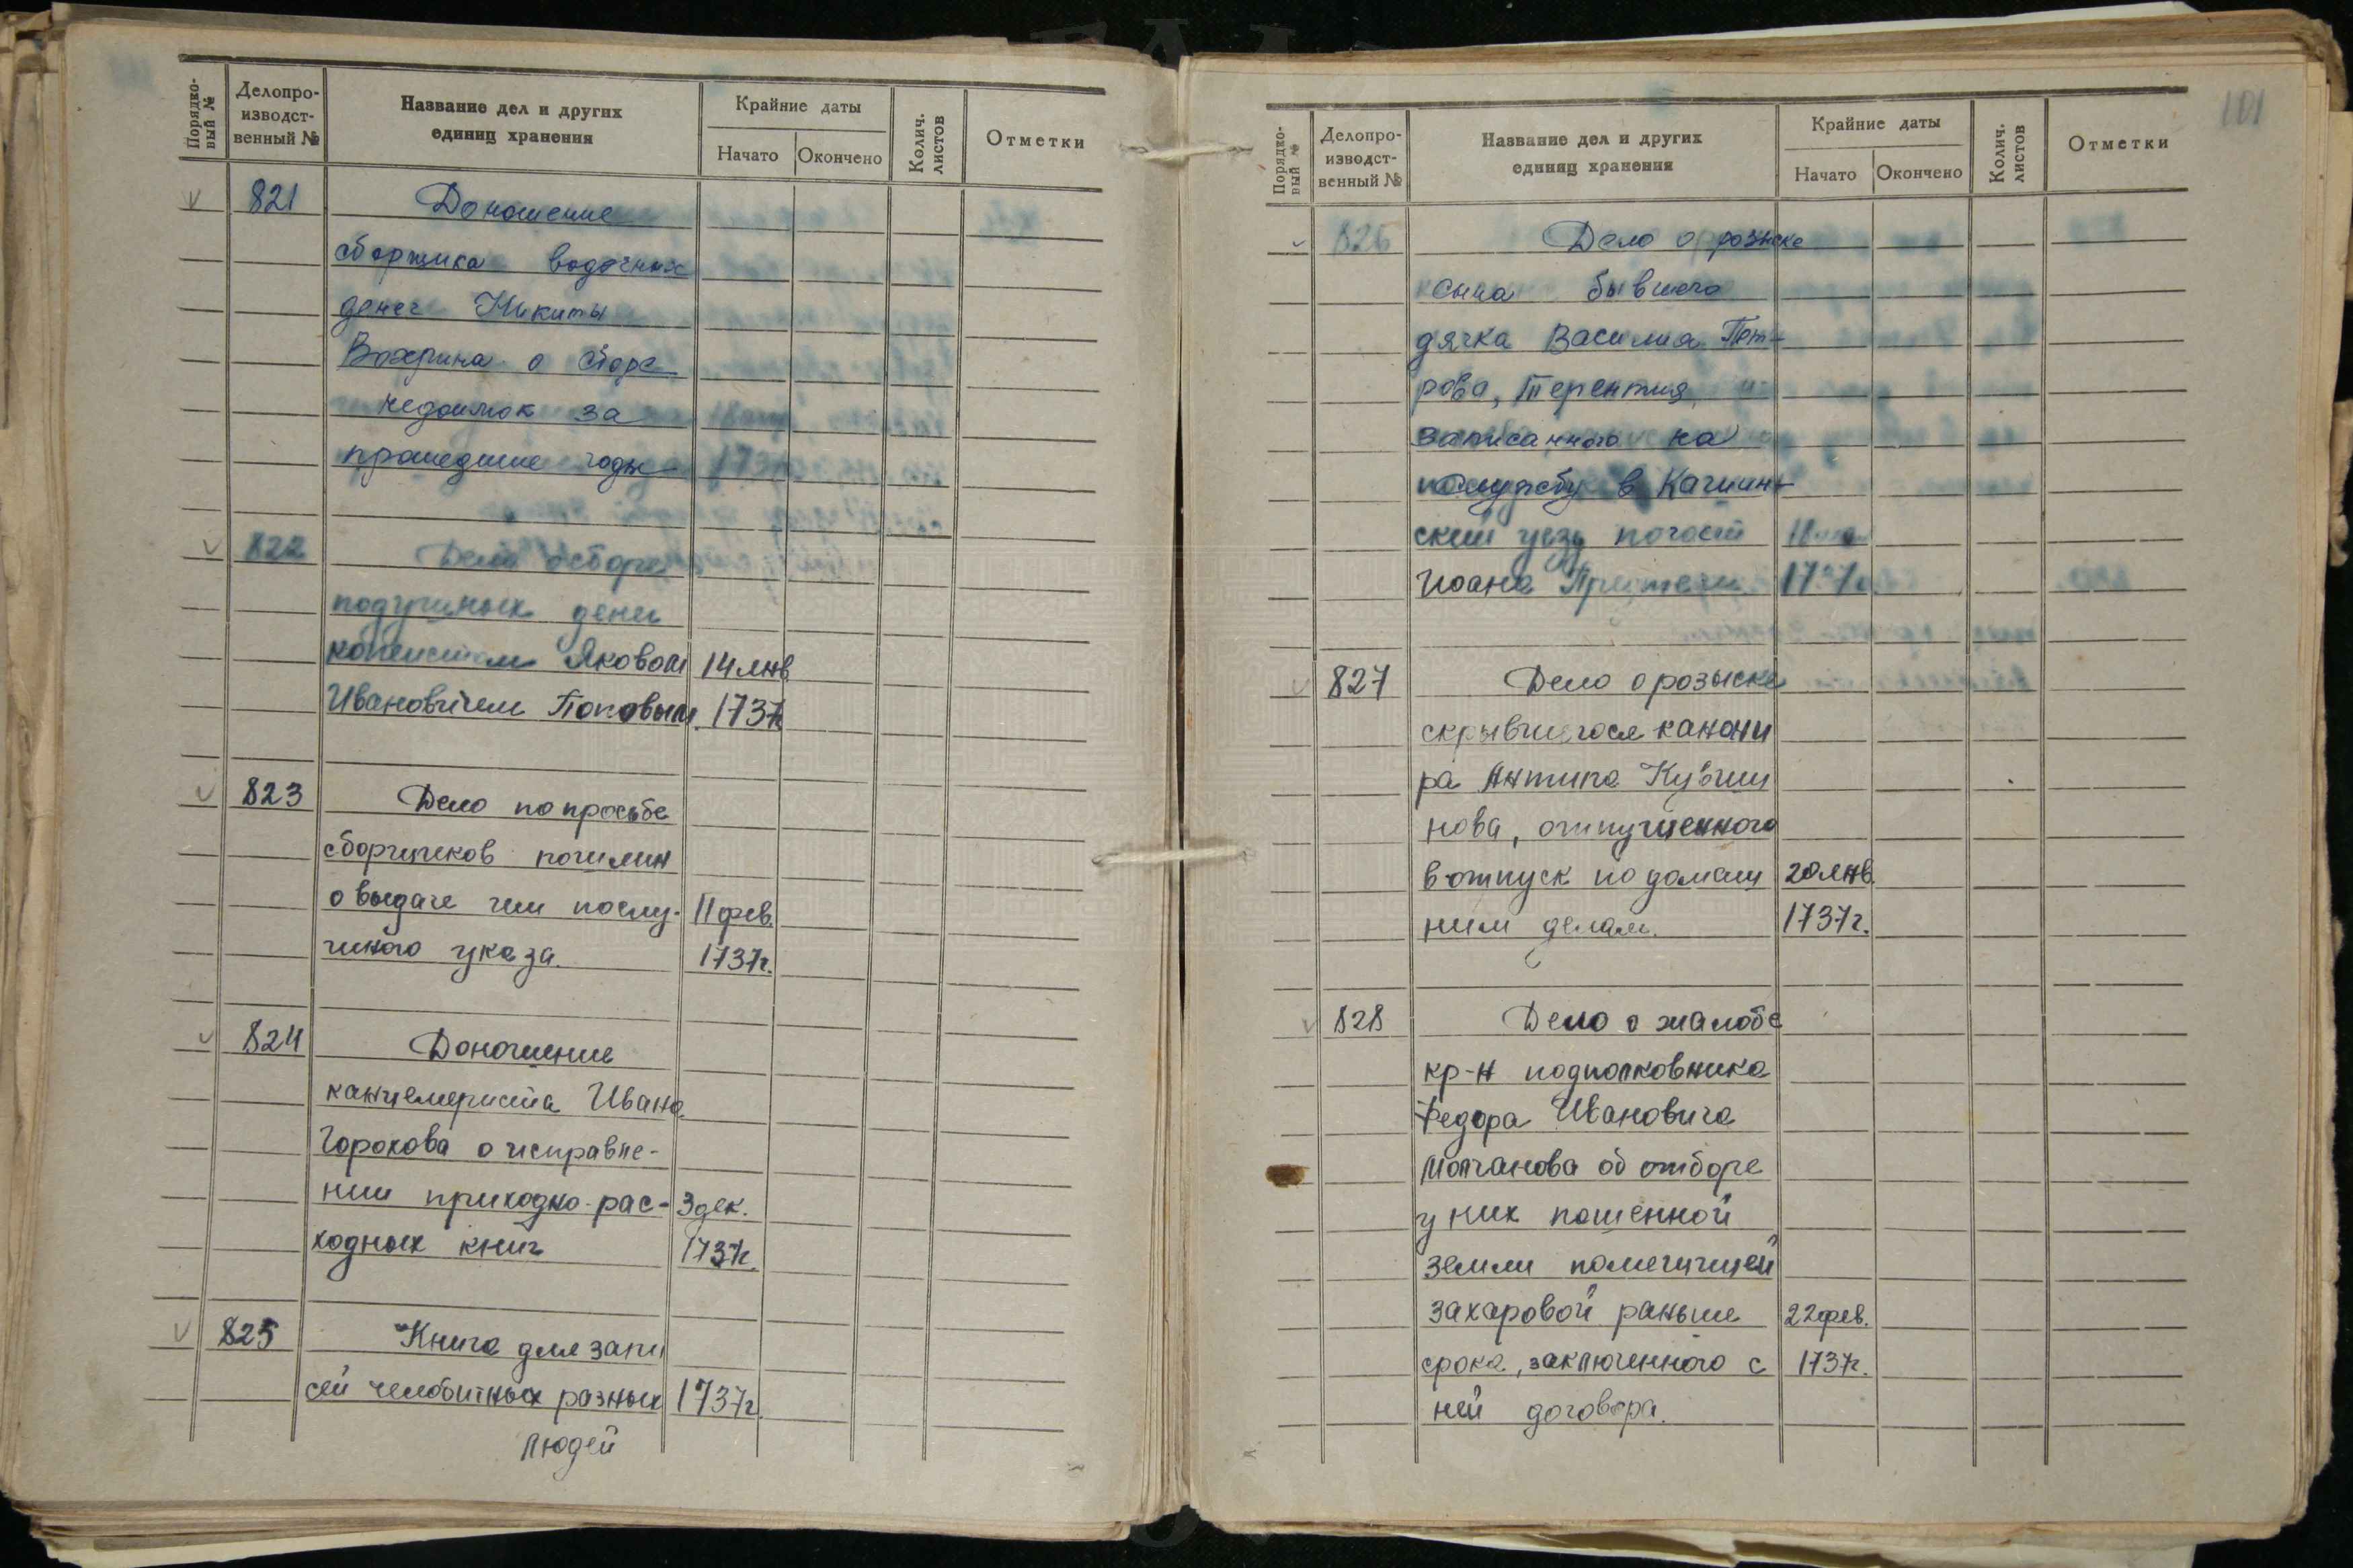 Порядко-
вый №
Делопро-
изводст-
венный №
Название дел и других
единиц хранения
Крайние даты
Начато
Окончено
Колич.
листов
Отметки
821
Доношение
сборщика водочных
денег Никиты
Вахрина о сборе
недоимок за
прошедшие годы
822
Дело о сборе
подушных денег
копеистом Яковом
14 янв
Ивановичем Поповым
1737г
823
Дело по просьбе
сборщиков пошлин
о выдаче им послу-
11 фев.
шного указа.
1737г.
824
Доношение
канцеляриста Ивана
Горохова о исправле-
нии приходно-рас-
3 дек.
ходных книг
1737г.
825
Книга для запи
сей челобитных разных
1737г.
людей
101
Порядко-
вый №
Делопро-
изводст-
венный №
Название дел и других
единиц хранения
Крайние даты
Начато
Окончено
Колич.
листов
Отметки
826
Дело о розыске
сына бывшего
дячка Василия Пет-
рова, Терентия,
записанного на
службу в Кашин-
ский уезд погост
Иоана Притечи
1737г.
827
Дело о розыске
скрывшегося канони
ра Антипа Кувши
нова, отпущенного
в отпуск по домаш
20 янв.
ним делам.
1737г.
828
Дело о жалобе
кр-н подполковника
Федора Ивановича
Молчанова об отборе
у них пашенной
земли помещицей
Захаровой раньше
22 фев.
срока, заключенного с
1737г.
ней договора.